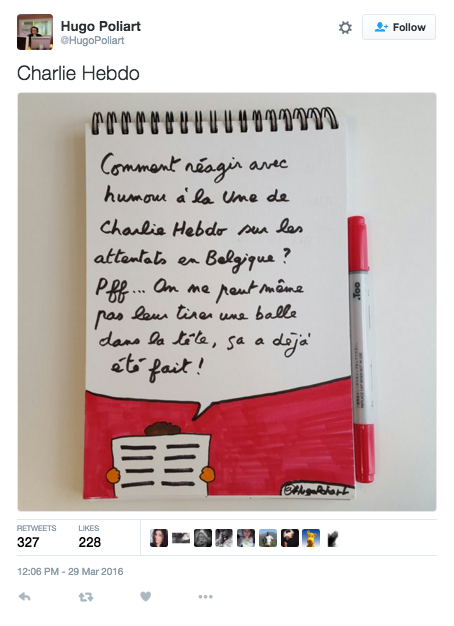 Hugo Poliart
@HugoPoliart
Follow
Charlie Hebdo
Comment réagir avec
humour à la Une de
Charlie Hebdo sur les
attentats en Belgique ?
Pff... On ne peut même
pas leur tirer une balle
dans la tête, ça a déjà
été fait !
@HugoPoliart
.Too
RETWEETS
327
LIKES
228
12:06 PM - 29 Mar 2016